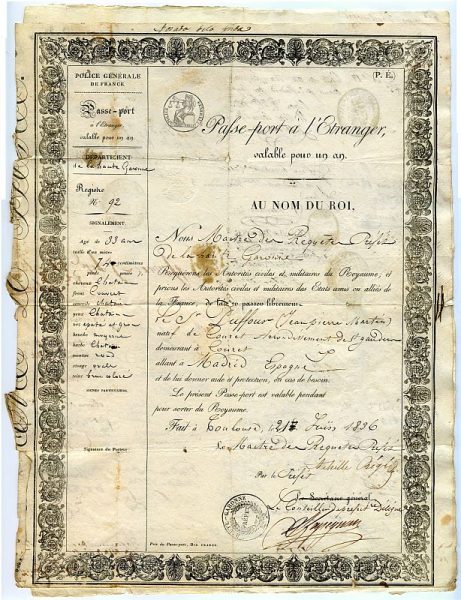 POLICE GÉNÉRALE
DE FRANCE
Passe-port
à l'Etranger,
valable pour un an.
DÉPARTEMENT
de la haute Garonne
Registre
N° 92
SIGNALEMENT.
Agé de 33 ans
taille d'un mètre
centimètres
cheveux chatain
front couvert
sourcils chatain
yeux chatain
nez
bouche moyenne
barbe chatain
menton rond
visage ovale
teint
SIGNES PARTICULIERS.
Signature du Porteur
(P. E.)
Passe-port à l'Etranger,
valable pour un an.
AU NOM DU ROI.
Nous Maitre des Requetes Préfet
De la haute Garonne
Requérons les Autorités civiles et militaires du Royaume, et
prions les Autorités civiles et militaires des Etats amis ou alliés de
la France, de laisser passer librement
le Sr Puffour (Jean pierre Martin)
natif de Touret Arrondissement de St gaudens
demeurant à Touret
allant à Madrid Espagne
et de lui donner aide et protection, en cas de besoin.
Le présent Passe-port est valable pendant
pour sortir du Royaume.
Fait à Toulouse, le 21 Juin 1836
Le Maitre des Requetes Préfet
Par le Préfet
Le Secrétaire général
Le Conseiller de Préfecture Délégué
Prix du Passe-port, DIX FRANCS.